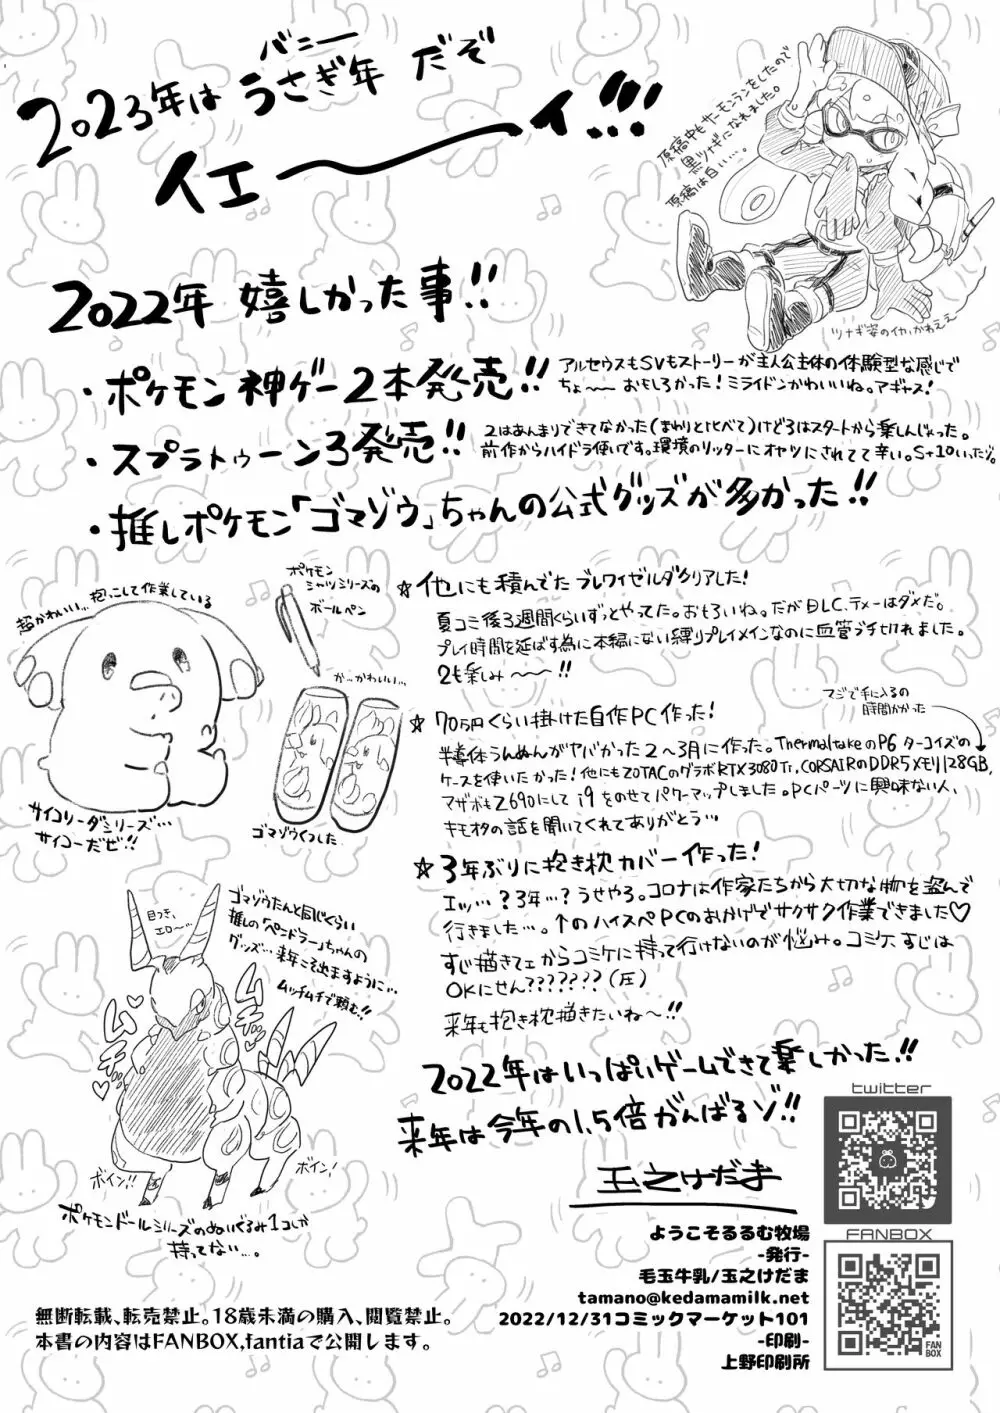 バニー
2023年は うさぎ年 だぞ
イエーーイ!!!
原稿中もサーモンランをしたので
黒ツナギになれました。
原稿は白い…。
ツナギ姿のイカ、かわええ
2022年 嬉しかった事!!
・ポケモン神ゲー2本発売!!
アルセウスもSVもストーリーが主人公主体の体験型な感じで
ちょ〜〜おもしろかった!ミライドンかわいいね。アギャス!
・スプラトゥーン3発売!!
2はあんまりできてなかった(まわりと比べて)けど3はスタートから楽しんじゃった。
前作からハイドラ使いです。環境のリッターにオヤツにされてて辛い。S+10いったゾ。
・推しポケモン「ゴマゾウ」ちゃんの公式グッズが多かった!!
超かわいい…抱っこして作業している
ポケモン
シャツシリーズの
ボールペン
か…かわいい…
サイコソーダシリーズ…
サイコーだぜ!!
ゴマゾウくつした
☆他にも積んでたブレワイゼルダクリアした!
夏コミ後3週間くらいずっとやってた。おもろいね。だがDLC、テメーはダメだ。
プレイ時間を延ばす為に本編にない縛りプレイメインなのに血管ブチ切れました。
2も楽しみ〜〜!!
☆70万円くらい掛けた自作PC作った!
マジで手に入るの
時間かかった
半導体うんぬんがヤバかった2〜3月に作った。ThermaltakeのP6 ターコイズの
ケースを使いたかった!他にもZOTACのグラボRTX3080Ti、CORSAIRのDDR5メモリ128GB、
マザボもZ690にして i9をのせてパワーアップしました。PCパーツに興味ない人、
キモオタの話を聞いてくれてありがとう…
☆3年ぶりに抱き枕カバー作った!
エッ…?3年…?うせやろ。コロナは作家たちから大切な物を盗んで
行きました…。↑のハイスペPCのおかげでサクサク作業できました♡
すじ描きてェからコミケに持って行けないのが悩み。コミケ、すじは
OKにせん???????(圧)
来年も抱き枕描きたいね〜!!
目つき、
エロ〜…
ゴマゾウたんと同じくらい
推しの「ペンドラー」ちゃんの
グッズ…来年こそ出ますように…
ムッチムチで頼む!!
ムチ…♡
ムチ…♡
ボイン!!
ボイン!
ポケモンドールシリーズのぬいぐるみ1コしか
持ってない…。
2022年はいっぱいゲームできて楽しかった!!
来年は今年の1.5倍がんばるゾ!!
玉之けだま
twitter
FANBOX
FAN
BOX
ようこそるるむ牧場
-発行-
毛玉牛乳/玉之けだま
tamano@kedamamilk.net
2022/12/31コミックマーケット101
-印刷-
上野印刷所
無断転載、転売禁止。18歳未満の購入、閲覧禁止。
本書の内容はFANBOX,fantiaで公開します。